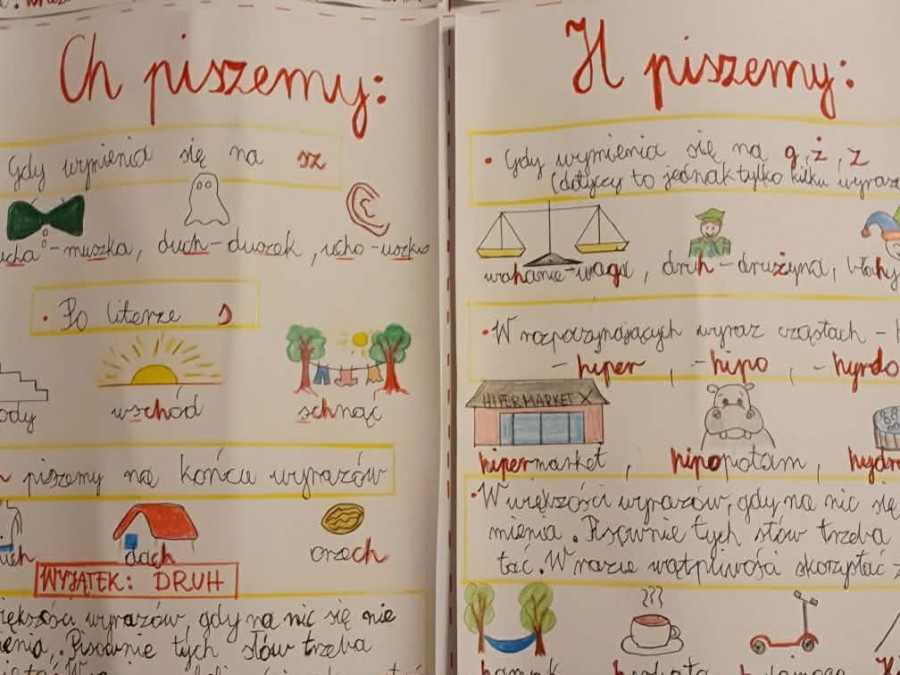 Ch piszemy:
Gdy wymienia się na sz
ucha-muszka, duch-duszek, ucho-uszko
• Po literze s
wschód schnąc
piszemy na końcu wyrazów
dach orzech
WYJĄTEK: DRUH
wyrazów, gdy na nic się nie
Pisownie tych słów trzeba
H piszemy:
• Gdy wymienia się na g, ż, z
(dotyczy to jednak tylko kilku
wahanie-waga, druh-drużyna,
• W rozpoczynających wyraz cząstach -
- hiper, - hipo, - hyrdo
HIPERMARKET X
hipermarket, hipopotam,
• W większości wyrazów, gdy na nic się
mienia. Pisownie tych słów trzeba
tać. W razie wątpliwości skorzystać z